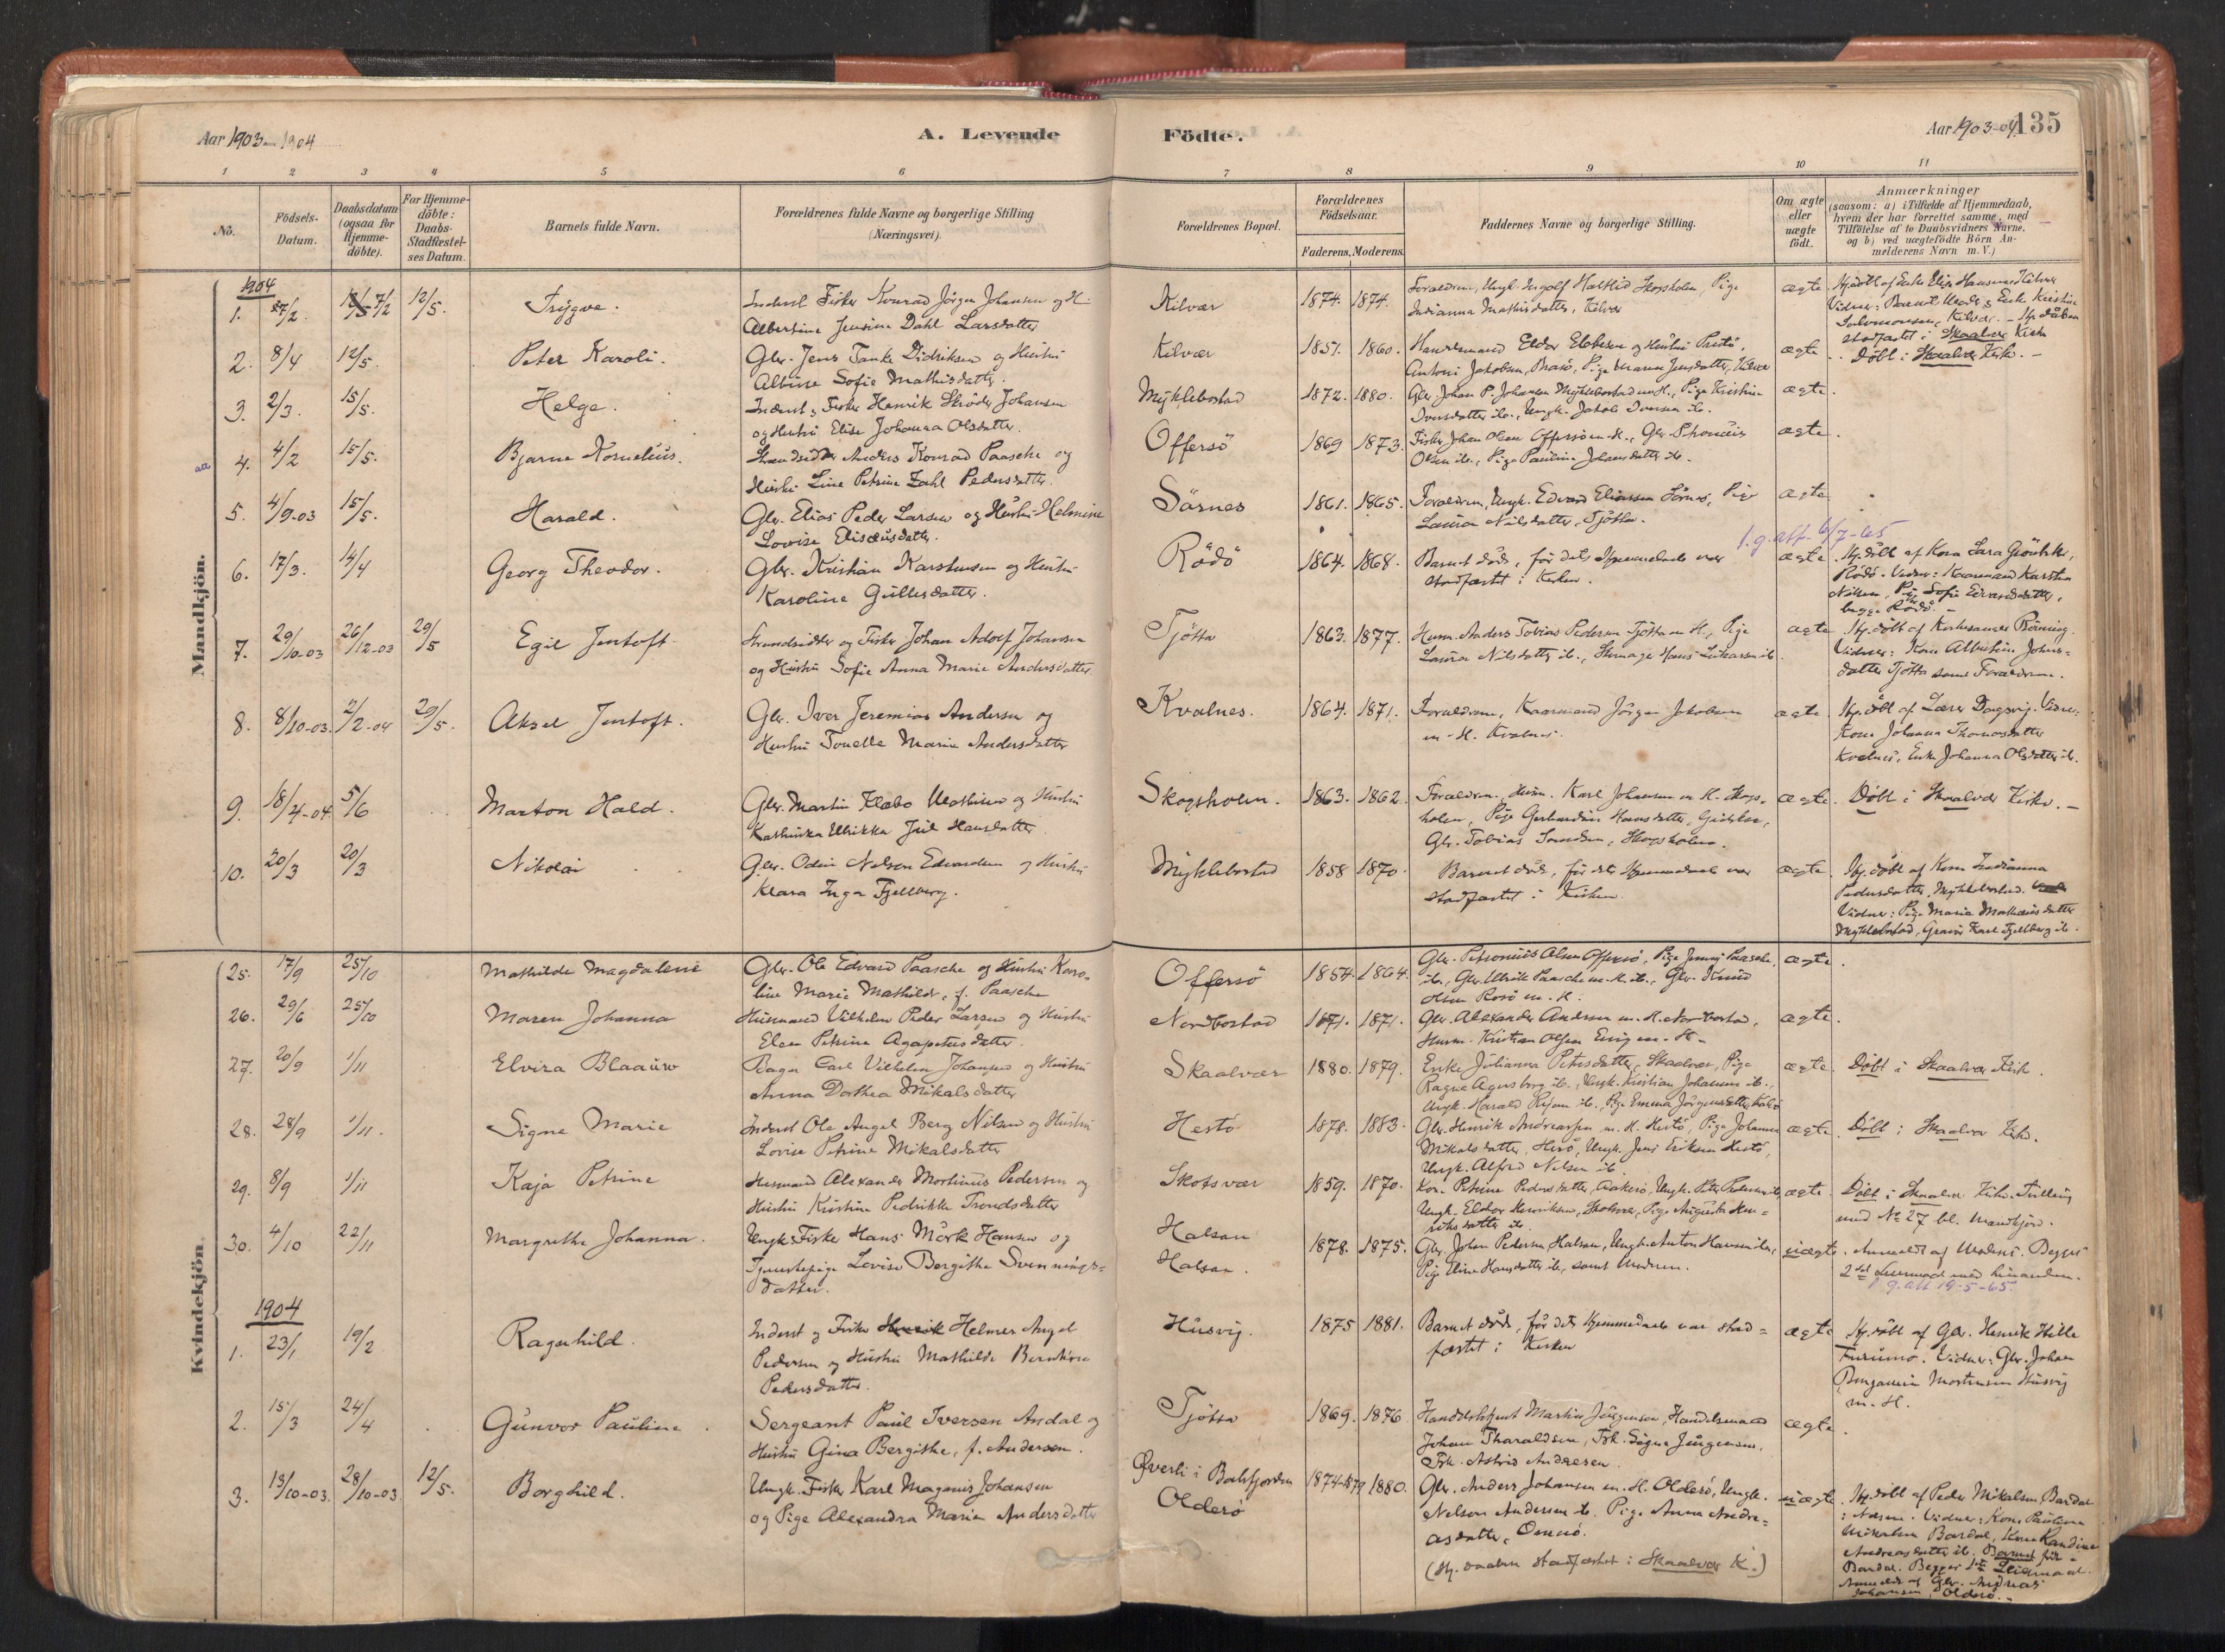 Aar 1903-1904
A. Levende
Födte.
Aar 1903-04.
135
1 2 3 4 5 6 7 8 9 10 11
No.
Födsels-
Datum.
Daabsdatum
(ogsaa for
Hjemme-
döbte).
For Hjemme-
döbte:
Daabs-
Stadfæstel-
ses Datum.
Barnets fulde Navn.
Forældrenes fulde Navne og borgerlige Stilling
(Næringsvei).
Forældrenes Bopæl.
Forældrenes
Födselsaar.
Faderens. Moderens.
Faddernes Navne og borgerlige Stilling.
Om ægte
eller
uægte
födt.
Anmærkninger
(saasom: a) i Tilfælde af Hjemmedaab,
hvem der har forrettet samme, med
Tilföielse af to Daabsvidners Navne.
og b) ved uægtefödte Börn An-
melderens Navn m. V.)
Mandkjön.
1904
1. 7/2 12/5.
Trygve.
Inderst Fisker Konrad Jörgen Johansen og H.
Albertine Jensine Dahl Larsdatter
Kilvær
1874. 1874.
Indianna Mathisdatter, Kilvær
ægte
2. 8/4 12/5.
Peter Karoli.
Gbr. Jens Tanke Didriksen og Hustru
Albine Sofie Mathisdatter.
Kilvær
1851. 1860.
Antoni Jakobsen, Brasö, Pige Maren Jensdatter, Kilvær
ægte
Döbt i Skaalvær Kirke. -
3. 2/3. 15/5.
Helge.
Inderst & Fisker Henrik Skröder Johansen
og Hustru Elise Johanna Olsdatter.
Myklebostad
1872. 1880.
Gbr. Johan P. Johansen Myklebostad m H., Pige Kristine
Iversdatter ib., Ungk. Jakob Iversen ib.
ægte.
4. 4/2 15/5.
Bjarne Kornelius.
Strandsidder Anders Konrad Paasche og
Hustru Line Petrine Zahl Pedersdatter.
Offersö
1869 1873.
Fisker Johan Olsen Offersö m. H., Gbr. Petronius
Olsen ib., Pige Pauline Johansdatter ib.
ægte.
5. 4/9-03 15/5.
Harald.
Gbr. Elias Peder Larsen og Hustru Helmine
Lovise Elisæusdatter.
Sörnes
1861. 1865.
Forældrene, Ungk. Edvard Eliassen Sörnes, Pige
Laura Nilsdatter, Tjötta.
ægte
1.g.att. 6/7-65
6. 17/3. 14/4
Georg Theodor.
Gbr. Kristian Karstensen og Hustru
Karoline Gullesdatter.
Rödö
1864. 1868.
Barnet döde, för dets Hjemmedaab var
stadfæstet i Kirken.
ægte.
begge Rödö. -
7. 29/10-03 26/12-03 29/5
Egil Jentoft
Strandsidder og Fisker Johan Adolf Johansen
og Hustru Sofie Anna Marie Andersdatter.
Tjötta
1863. 1877.
Husm. Anders Tobias Pedersen Tjötta m H., Pige
Laura Nilsdatter ib.,
ægte
Vidner: Kone Albertine Johns-
datter Tjötta samt Forældrene.
8. 8/10-03. 2/2-04 29/5.
Aksel Jentoft.
Gbr. Iver Jeremias Andersen og
Hustru Tonette Marie Andersdatter
Kvalnes.
1864. 1871.
Forældrene, Kaarmand Jörgen Jakobsen
m. H. Kvalnes.
ægte.
Hj. döbt af Lærer Dagsvig. Vidner:
Kone Johanna Thomasdatter
Kvalnes, Enke Johanna Olsdatter ib.
9. 18/4-04. 5/6
Marton Hald.
Gbr. Martin Klæbo Mathisen og Hustru
Kathinka Ulrikka Juel Hansdatter
Skogsholm.
1863. 1862.
Forældrene, Husm. Karl Johansen m H. Skogs-
ægte.
Döbt i Skaalvær Kirke. -
10. 20/3 20/3
Nikolai
Gbr. Odin Nelson Edvardsen og Hustru
Klara Inga Fjellberg.
Myklebostad
1858 1870.
Barnet döde, för dets Hjemmedaab var
stadfæstet i Kirken.
ægte.
Hj. döbt af Kone Indianna
Pedersdatter, Myklebostad.
Vidner: Pige Maria Mathæusdatter
Myklebostad, Karl Fjellberg ib.
Kvindekjön.
25. 17/9 25/10
Mathilde Magdalene
Gbr. Ole Edvard Paasche og Hustru Karo-
line Marie Mathilde, f. Paasche
Offersö
1854. 1864.
Gbr. Petronius Olsen Offersö, Pige Jenny Paasche
ib., Gbr. Ulrik Paasche m. H. ib., Gbr. Knud
Olsen Rosö m. H.
ægte.
26. 29/6 25/10
Maren Johanna
Husmand Vilhelm Peder Larsen og Hustru
Elen Petrine Agapetusdatter.
Nordbostad
1871. 1871.
Gbr. Alexander Andersen m. H. Nordbostad,
ægte.
27. 20/9 1/11
Elvira Blaauw
Bager Carl Vilhelm Johansen og Hustru
Anna Dorthea Mikalsdatter
Skaalvær
1880. 1879.
Enke Julianna Petersdatter, Skaalvær, Pige
ægte.
Döbt i Skaalvær Kirke.
28. 28/9 1/11.
Signe Marie
Inderst Ole Angel Berg Nilsen og Hustru
Lovise Petrine Mikalsdatter
Hestö
1878. 1883.
Gbr. Henrik Andreassen m. H. Hestö, Pige Johanna
Mikalsdatter, Herö, Ungk. Jens Eriksen Hestö,
Ungk. Alfred Nilsen ib.
ægte.
Döbt i Skaalvær Kirke.
29. 8/9 1/11
Kaja Petrine
Husmand Alexander Mortinus Pedersen og
Hustru Kirstine Pedrikke Trondsdatter
Skotsvær
1859. 1870.
ægte.
Döbt i Skaalvær Kirke. Tvilling
med No 27 bl. Mandkjön.
30. 4/10 22/11
Margrethe Johanna.
Ungk. Fisker Hans Mörk Hansen og
Tjenestepige Lovise Bergithe Svennings-
datter.
Halsan
Halsan.
1878. 1875.
Gbr. Johan Pedersen Halsan, Ungk. Anton Hansen ib.,
Pige Eline Hansdatter ib., samt Moderen.
uægte.
Anmeldt af Moderen. Begges
2det Leiermaal med hinanden.
g. att 19-5-65.
1904
1. 23/1 19/2
Ragnhild.
Inderst og Fisker Helmer Angel
Pedersen og Hustru Mathilde Berntine
Pedersdatter.
Husvig.
1875 1881.
Barnet döde, för dets Hjemmedaab var stad-
fæstet i Kirken
ægte
Hj. döbt af Gbr. Henrik Hille
Furumo. Vidner: Gbr. Johan
Benjamin Mortensen Husvig
m. H.
2. 15/3 24/4
Gunvor Pauline.
Sergeant Paul Iversen Andal og
Hustru Gina Bergithe, f. Andersen.
Tjötta
1869. 1876.
Handelsbetjent Martin Jörgensen, Handelsmand
Johan Tharaldsen, Frk. Signe Jürgensen,
Frk. Astrid Andresen.
ægte.
3. 13/10-03. 28/10-03 12/5.
Borghild.
Ungk. Fisker Karl Magnus Johansen
og Pige Alexandra Marie Andersdatter
Överli i Balsfjorden
Olderö
1874 1880.
Gbr. Anders Johansen m. H. Olderö, Ungk.
Nelson Andersen ib. Pige Anna Andre-
asdatter, Omnö.
(Hj. daaben stadfæstet i Skaalvær K.)
uægte.
Hj. döbt af Peder Mikalsen Bardal
i Næsne. Vidner: Kone Pauline
Mikalsen Bardal, Kone Randine
Andreasdatter ib.
Bardal. Begges 1ste Leiermaal.
Anmeldt af Gbr. Andreas
Johansen, Olderö. -